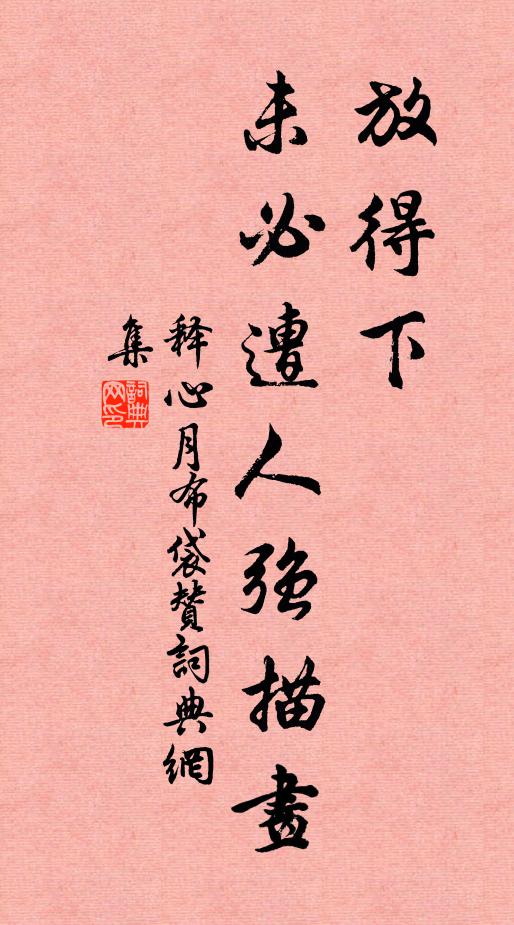 放得下
未必遭人強描畫
释心月布袋賛詞典網
集
詞典网印